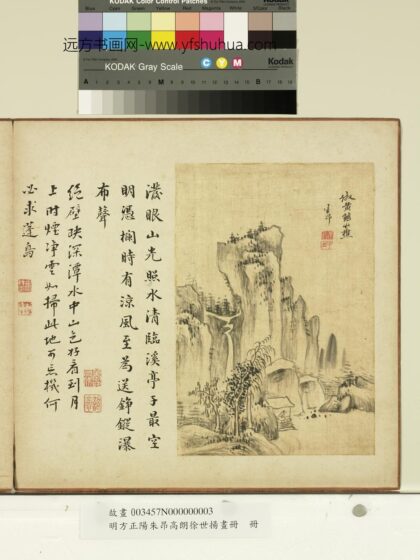 KODAK Color Control Patches
Blue Cyan Green Yellow Red Magenta White 3/Color Black
远方书画网-www.yfshuhua.com
Kodak
KODAK Gray Scale
C Y M
Kodak
A 1 2 3 4 5 6 M 8 9 10 11 12 13 14 15 B 17 18 19
潑眼山光照水清臨溪亭子最空
明憑欄時有涼風至為送錚鏦瀑
布聲
絕壁映深潭水中山色好看到月
上時煙淨雲如掃此地可忘機何
必求蓬島
故畫 003457N000000003
明方正陽朱昂高朗徐世揚畫冊 冊